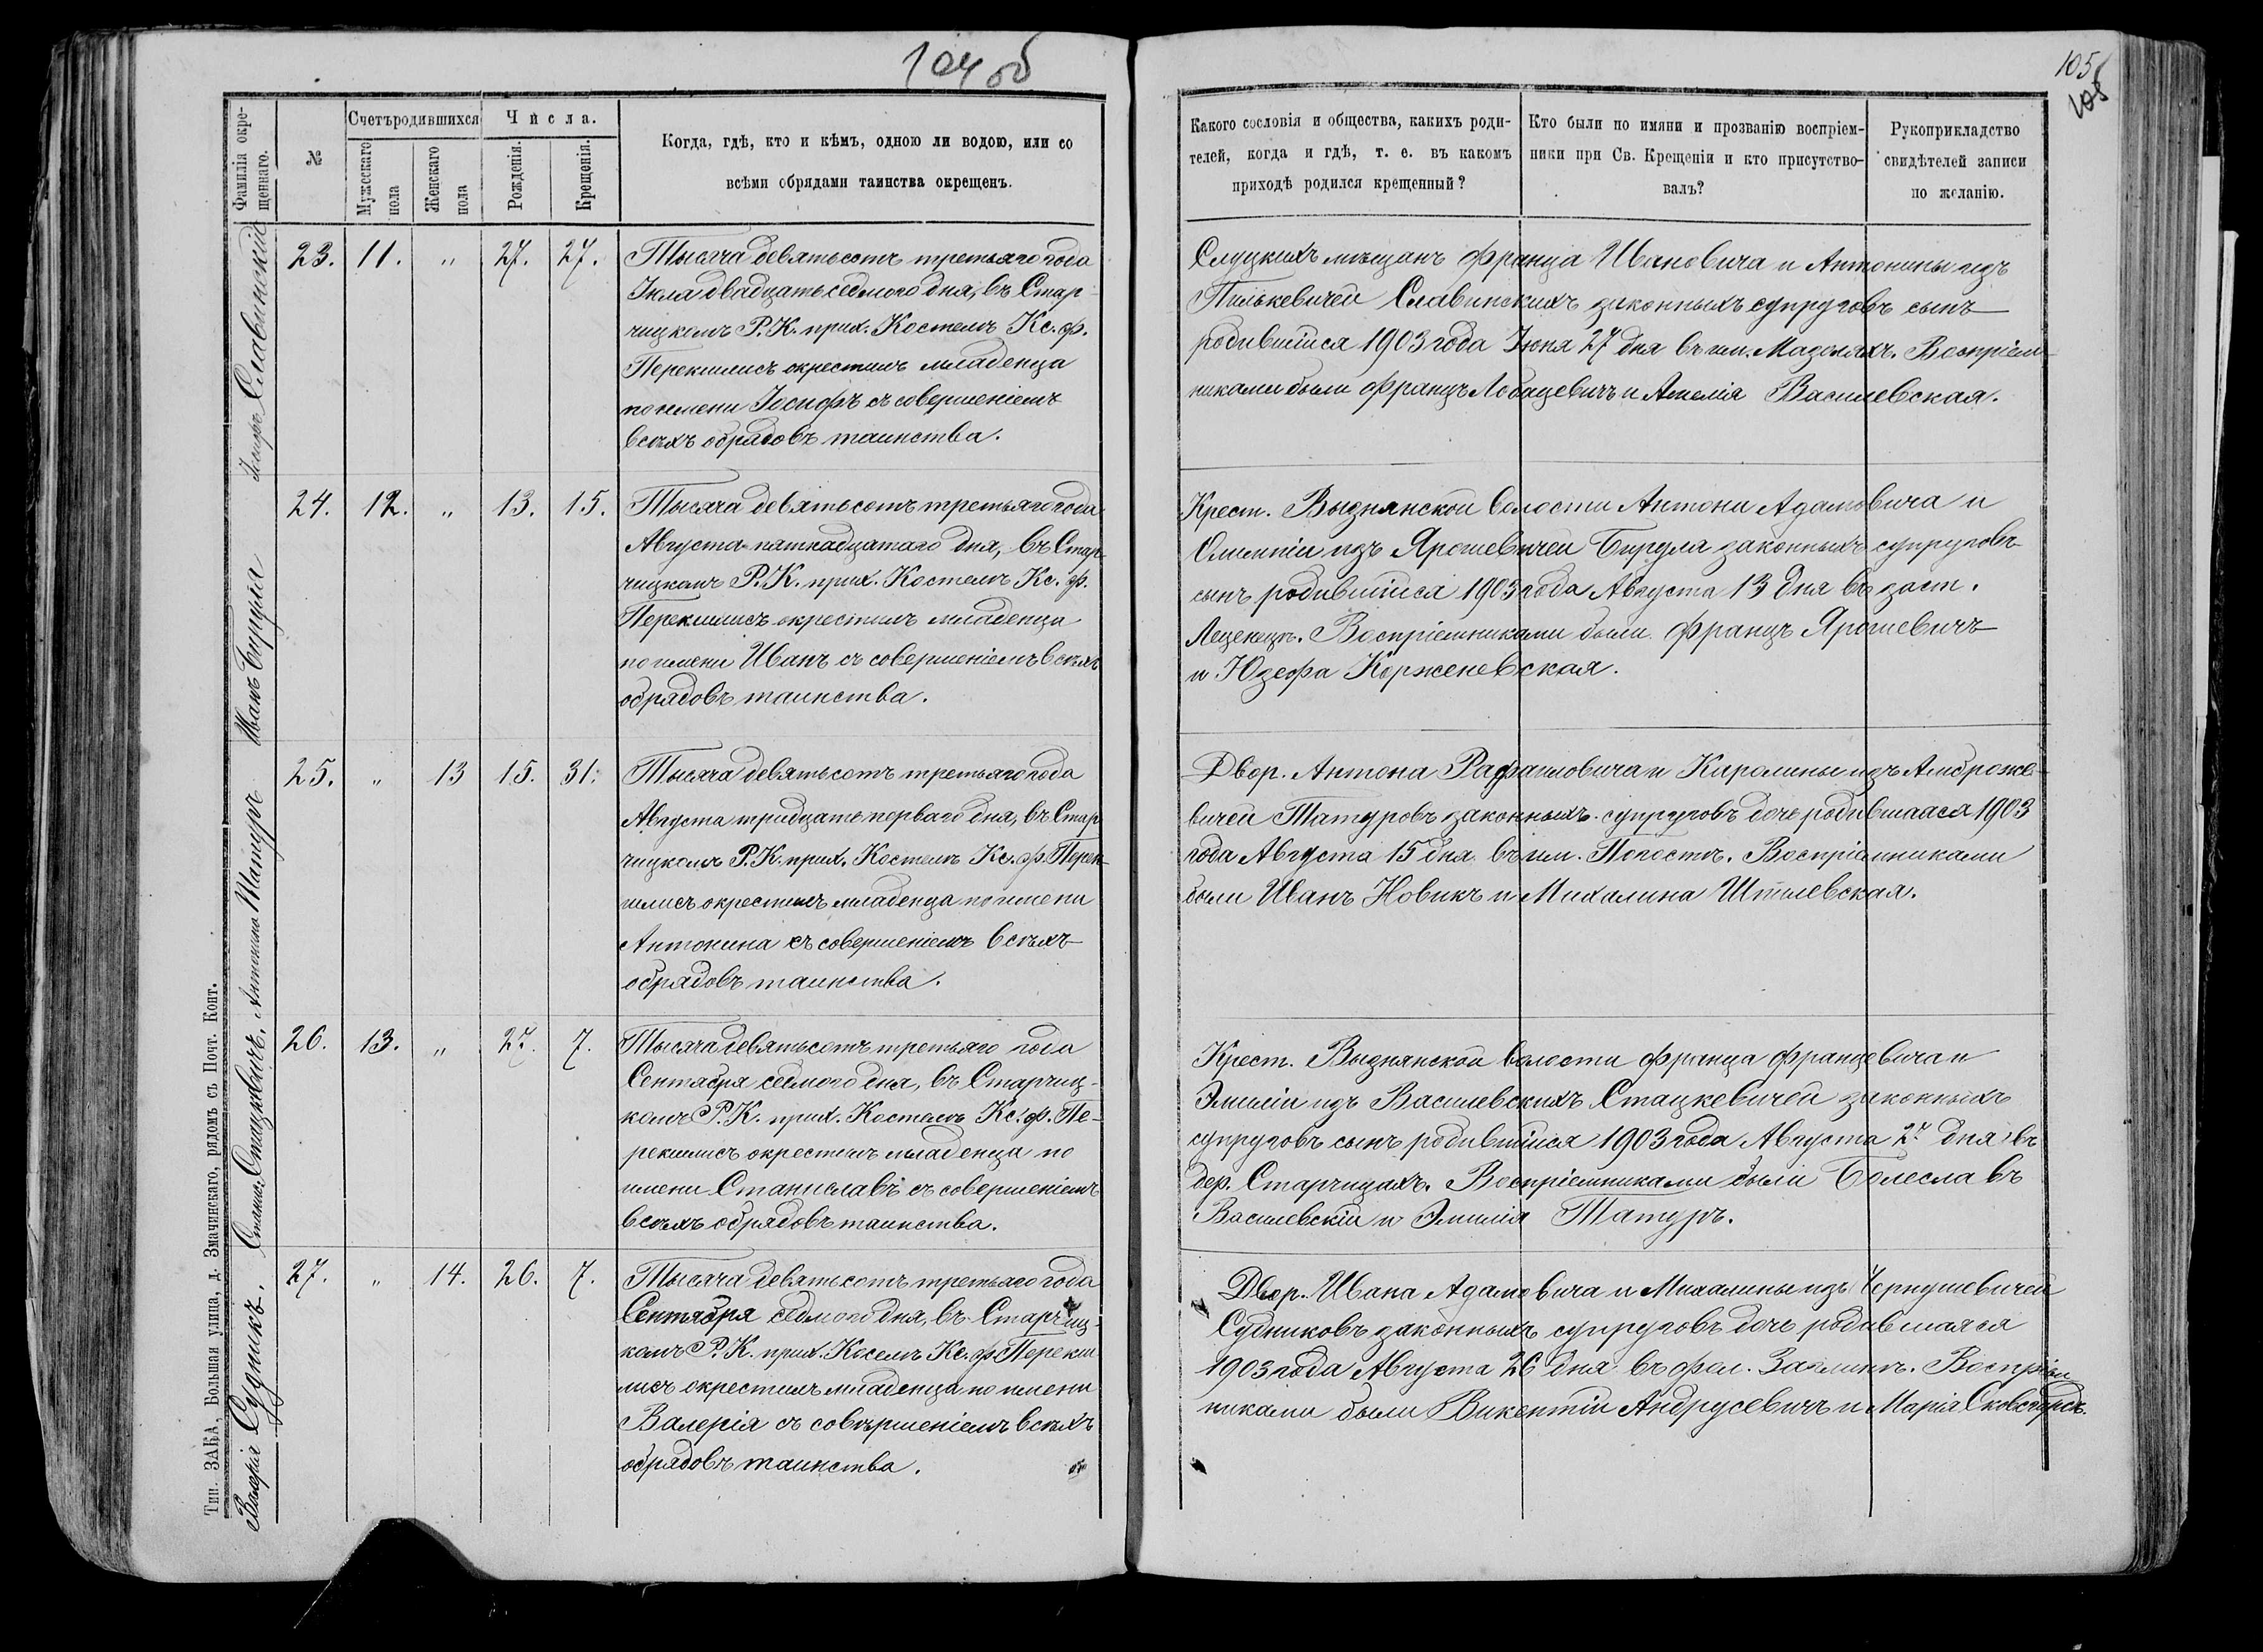 104 об
105
105
Фамилія окре-
щеннаго.
№
Счетъ родившихся
Мужескаго
пола
Женскаго
пола
Числа.
Рожденія.
Крещенія.
Когда, гдѣ, кто и кѣмъ, одною ли водою, или со
всѣми обрядами таинства окрещенъ.
Какого сословія и общества, какихъ роди-
телей, когда и гдѣ, т. е. въ какомъ
приходѣ родился крещенный?
Кто были по имяни и прозванію воспріем-
ники при Св. Крещеніи и кто присутство-
валъ?
Рукоприкладство
свидѣтелей записи
по желанію.
Іосифъ Славинскій
23. 11. " 27. 27.
Тысяча девятьсотъ третьяго года
Іюля двадцать седмого дня, въ Стар-
чицкомъ Р. К. прих. Костелѣ Кс. Ф.
Перекшлисъ окрестилъ младенца
по имени Іосифъ съ совершеніемъ
всѣхъ обрядовъ таинства.
Слуцкихъ мѣщанъ Франца Ивановича и Антонины изъ
Пилькевичей Славинскихъ законныхъ супруговъ сынъ
родившійся 1903 года Іюня 27 дня въ им. Мазоляхъ. Воспріем-
никами были Францъ Лобацевичъ и Амелія Василевская.
Иванъ Бируля
24. 12. " 13. 15.
Тысяча девятьсотъ третьяго года
Августа пятнадцатаго дня, въ Стар-
чицкомъ Р. К. прих. Костелѣ Кс. Ф.
Перекшлисъ окрестилъ младенца
по имени Иванъ съ совершеніемъ всѣхъ
обрядовъ таинства.
Крест. Вызнянской волости Антони Адамовича и
изъ Ярошевичей Бируля законныхъ супруговъ
сынъ родившійся 1903 года Августа 13 дня въ заст.
Воспріемниками были Францъ Ярошевичъ
и Юзефа Корженевская.
Антонина Татуръ
25. " 13 15. 31.
Тысяча девятьсотъ третьяго года
Августа тридцать перваго дня, въ Стар-
чицкомъ Р. К. прих. Костелѣ Кс. Ф. Перек-
шлисъ окрестилъ младенца по имени
Антонина съ совершеніемъ всѣхъ
обрядовъ таинства.
Двор. Антона Рафаиловича и Каролины изъ Амброже-
вичей Татуровъ законныхъ супруговъ дочь родившаяся 1903
года Августа 15 дня въ им. Погостѣ. Воспріемниками
были Иванъ Новикъ и Михалина Штилевская.
Станис. Стацкевичъ.
26. 13. " 27. 7.
Тысяча девятьсотъ третьяго года
Сентября седмого дня, въ Старчиц-
комъ Р. К. прих. Костелѣ Кс. Ф. Пе-
рекшлисъ окрестилъ младенца по
имени Станиславъ съ совершеніемъ
всѣхъ обрядовъ таинства.
Крест. Вызнянской волости Франца Францевича и
Эмиліи изъ Василевскихъ Стацкевичей законныхъ
супруговъ сынъ родившійся 1903 года Августа 27 дня въ
дер. Старчицахъ. Воспріемниками были Болеславъ
Василевскій и Эмилія Татуръ.
Валерія Судникъ.
27. " 14. 26. 7.
Тысяча девятьсотъ третьяго года
Сентября седмого дня, въ Старчиц-
комъ Р. К. прих. Коселѣ Кс. Ф. Перекш-
лисъ окрестилъ младенца по имени
Валерія съ совѣршеніемъ всѣхъ
обрядовъ таинства.
Двор. Ивана Адамовича и Михалины изъ Чернушевичей
Судниковъ законныхъ супруговъ дочь родившаяся
1903 года Августа 26 дня въ фол. Воспріем-
никами были Викентій Андрусевичъ и Марія
Тип. ЗАКА, Большая улица, д. Значинскаго, рядомъ съ Почт. Конт.